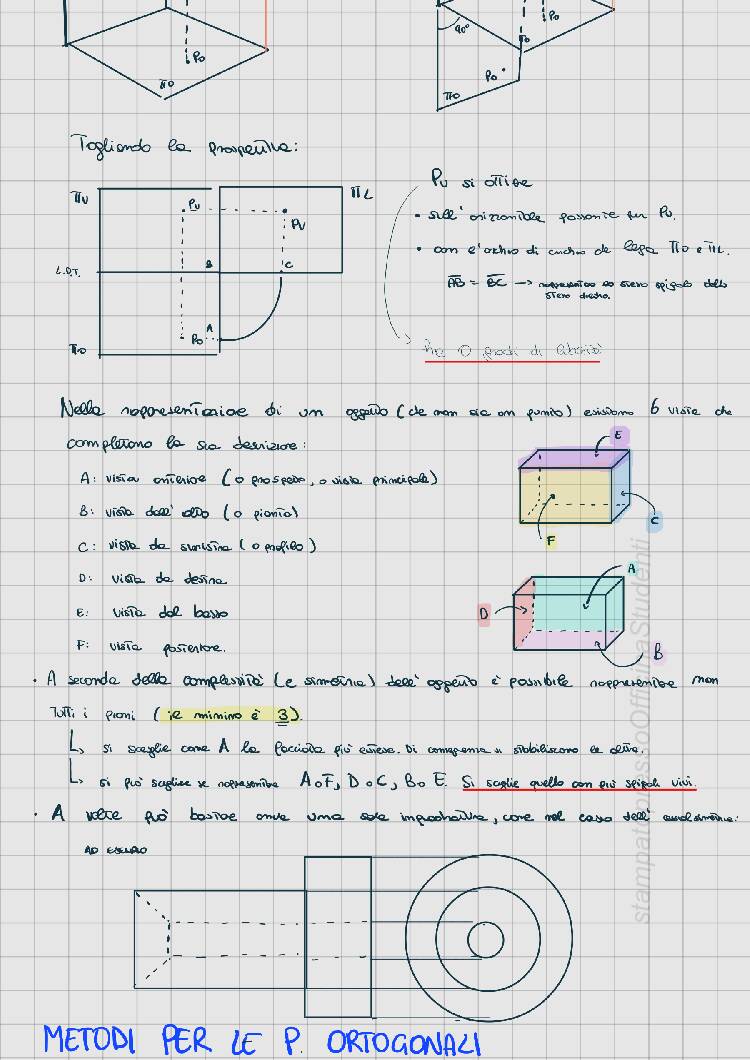 Po
πo
90°
Po
Po
πo
Togliendo la prospettiva:
πv
πL
Pv
Pv
L.D.T.
B
C
A
Po
πo
Pv si ottiene
• sull'orizzontale passante per Pv.
• con l'arco di cerchio che lega πo e πL.
AB = BC → rappresentano lo stesso spigolo dello
stesso diedro.
ha 0 gradi di libertà
Nella rappresentazione di un oggetto (che non sia un punto) esistono 6 viste che
completano la sua descrizione:
A: vista anteriore (o prospetto, o vista principale)
B: vista dall'alto (o pianta)
C: vista da sinistra (o profilo)
D: vista da destra
E: vista dal basso
F: vista posteriore.
E
C
F
A
D
B
• A seconda della complessità (e simmetria) dell'oggetto è possibile rappresentare non
tutti i piani (il minimo è 3).
↳ si sceglie come A la facciata più estesa. Di conseguenza si stabiliscono le altre.
↳ si può scegliere se rappresentare A o F, D o C, B o E. Si sceglie quello con più spigoli vivi.
• A volte può bastare anche una sola
come nel caso dell'
AD ESEMPIO
METODI PER LE P. ORTOGONALI
stampatopressoOfficinaStudenti